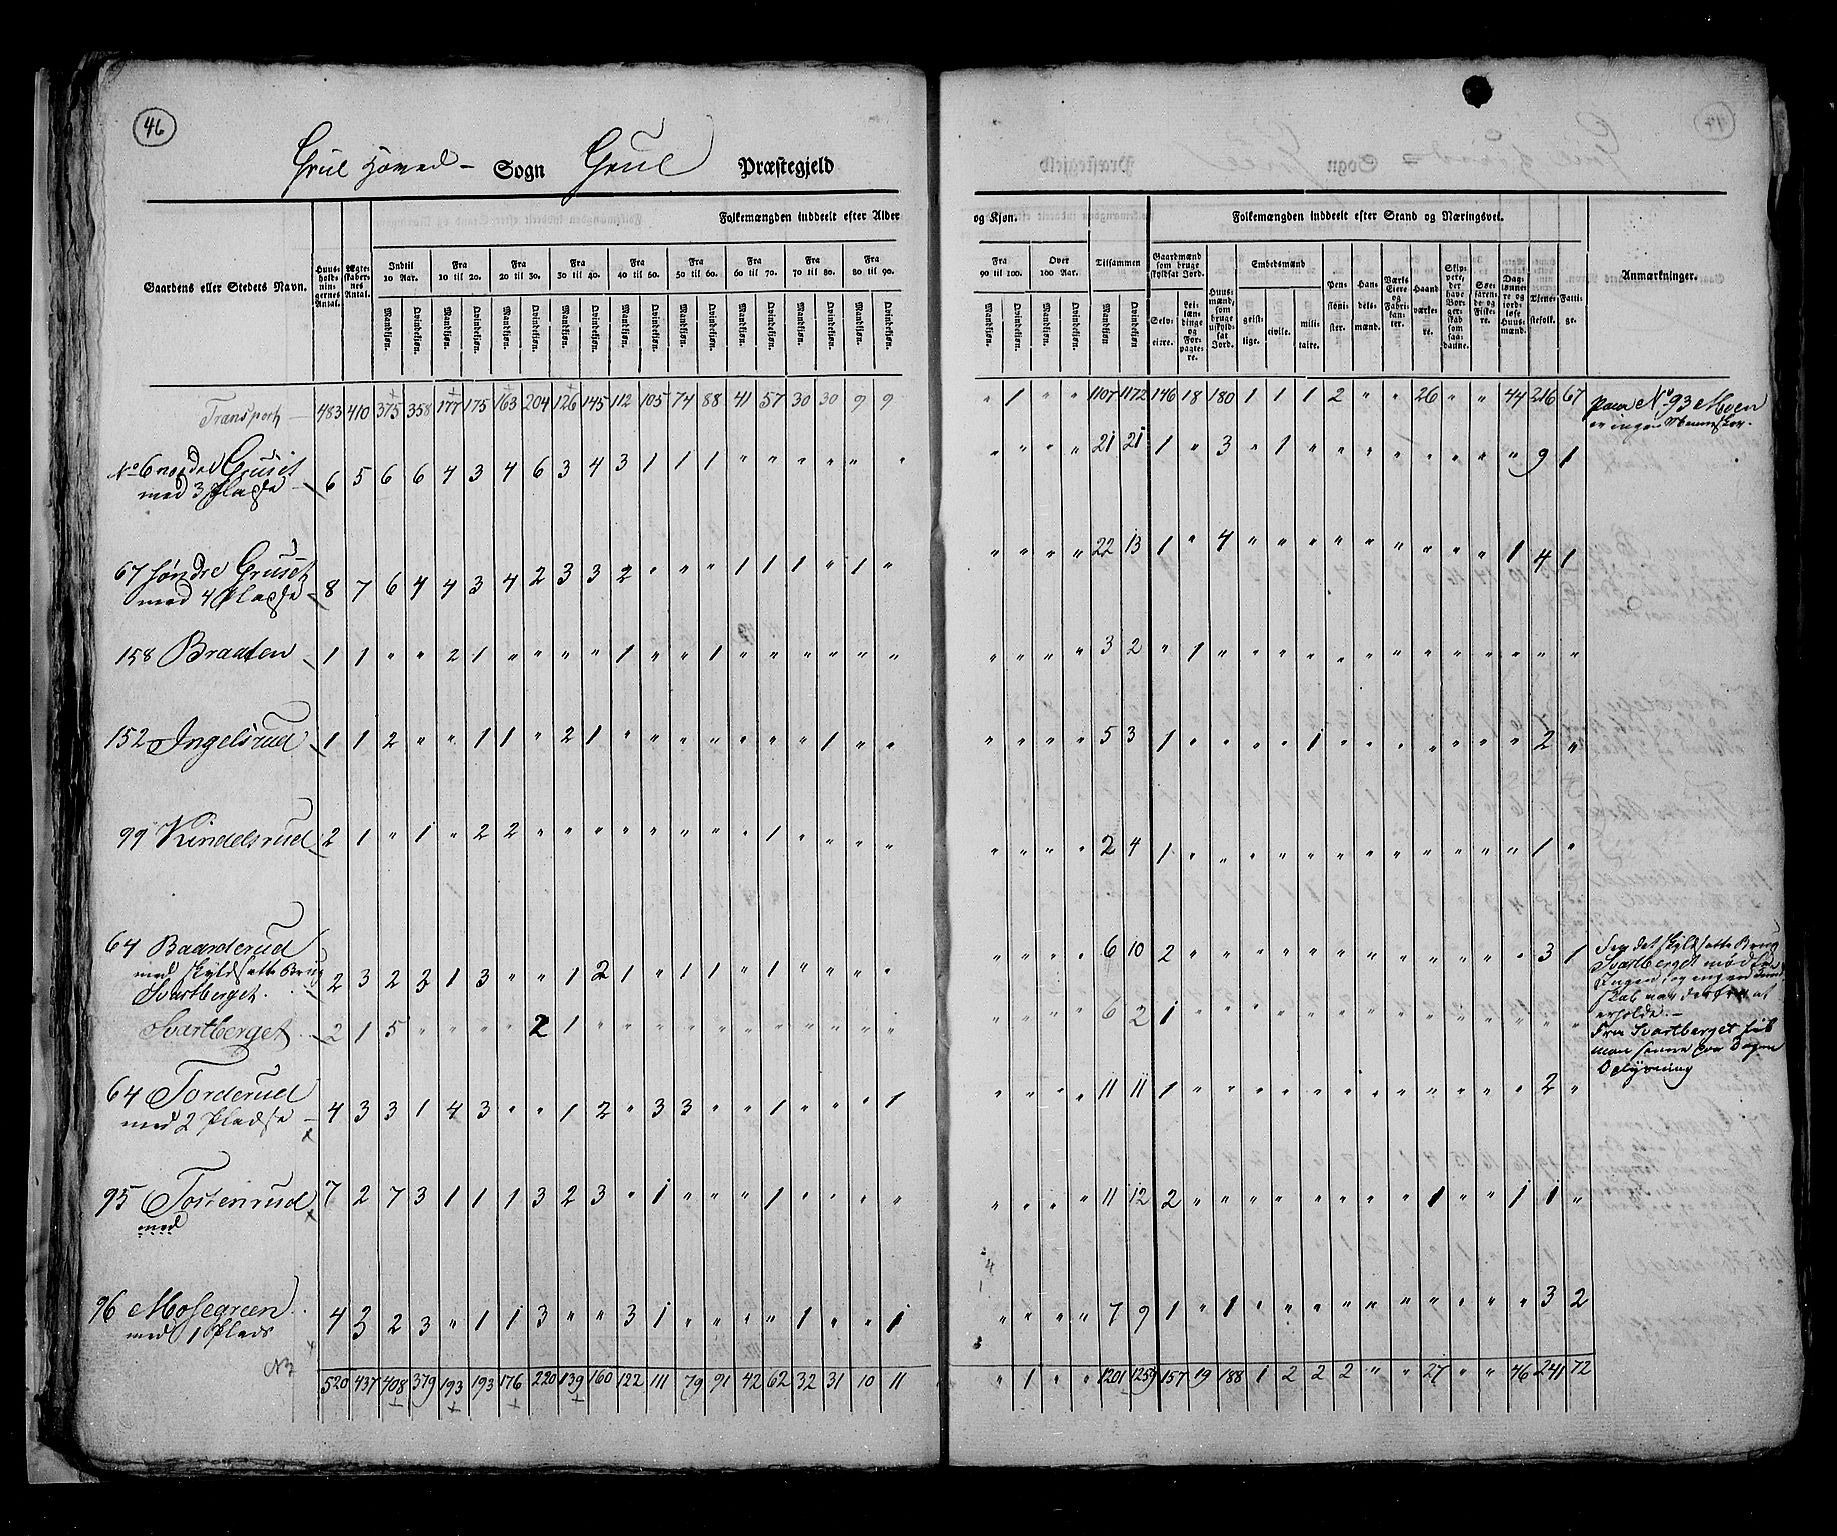 46
Grue Hoved- Sogn Grue Præstegjeld
Gaardens eller Stedets Navn. Huusholdningernes Antal. Ægteskabernes Antal. Folkemængden inddeelt efter Alder og Kjøn. Tilsammen Folkemængden inddeelt efter Stand og Næringsvei. Anmærkninger.
Indtil 10 Aar. Fra 10 til 20. Fra 20 til 30. Fra 30 til 40. Fra 40 til 50. Fra 50 til 60. Fra 60 til 70. Fra 70 til 80. Fra 80 til 90. Fra 90 til 100. Over 100 Aar.
Mandkjøn. Qvindekjøn. Mandkjøn. Qvindekjøn. Mandkjøn. Qvindekjøn. Mandkjøn. Qvindekjøn. Mandkjøn. Qvindekjøn. Mandkjøn. Qvindekjøn. Mandkjøn. Qvindekjøn. Mandkjøn. Qvindekjøn. Mandkjøn. Qvindekjøn. Mandkjøn. Qvindekjøn. Mandkjøn. Qvindekjøn. Mandkjøn. Qvindekjøn.
Gaardmænd som bruge skyldsat Jord. Selveiere. Leilændinge og Forpagtere. Huusmænd, som bruge uskyldsat Jord. Embedsmænd geistlige. civile. militaire. Pensionister. Handelsmænd. Værks Eiere og Fabrikanter. Haandværkere. Skippere, der have Borgerskab som saadanne. Søefarende og Fiskere. Daglønnere og jordløse Huusmænd. Tjenestefolk. Fattige.
Transport 483 410 375 358 177 175 163 204 126 145 112 105 74 88 41 57 30 30 9 9 " 1 " " 1107 1172 146 18 180 1 1 1 2 " " 26 " " 44 216 67 paa No 93 Moen
er ingen Mennesker.
No 6 nordre Gruset
med 3 Pladse 6 5 6 6 4 3 4 6 3 4 3 1 1 1 " " " " " " " " " " 21 21 1 " 3 " 1 " " " " " " " " 9 1
67 søndre Gruset
med 4 Pladse 8 7 6 4 4 3 4 2 3 3 2 " " " 1 1 1 " 1 " " " " " 22 13 1 " 4 " " " " " " " " " 1 4 1
158 Braaten 1 1 " " 2 1 " " " " 1 " " 1 " " " " " " " " " " 3 2 " 1 " " " " " " " " " " " " "
152 Ingelsrud 1 1 2 " " 1 1 " 2 1 " " " " " " " 1 " " " " " " 5 3 1 " " " " 1 " " " " " " " 2 "
99 Kindelsrud 2 1 " 1 " 2 2 " " " " " " " " 1 " " " " " " " " 2 4 1 " " " " " " " " " " " " 1 "
64 Baarderud
med skyldsatte Brug
Svartberget. 2 3 2 2 1 3 " " 1 2 1 " 1 1 " 1 " " " " " " " " 6 10 2 " " " " " " " " " " " " 3 1
Svartberget 2 1 5 " " " " 2 1 " " " " " " " " " " " " " " " 6 2 1 " " " " " " " " " " " " " "
erholde.
Fra Svartberget fik
man senere
Oplysning
64 Torderud
med 2 Pladse 4 3 3 1 4 3 " " 1 2 " 3 3 " " 1 " " " 1 " " " " 11 11 1 " " " " " " " " " " " " 2 "
95 Tostenrud
med 7 2 7 3 1 1 1 3 2 3 " 1 " " " 1 " " " " " " " " 11 12 2 " " " " " " " " 1 " " 1 1 "
96 Mosegreen
med 1 Plads 4 3 2 3 " 1 1 3 " " 3 1 " " " " 1 " " 1 " " " " 7 9 1 " 1 " " " " " " " " " " 3 2
520 437 408 379 193 193 176 220 139 160 122 111 79 91 42 62 32 31 10 11 " 1 " " 1201 1259 157 19 188 1 2 2 2 " " 27 " " 46 241 72